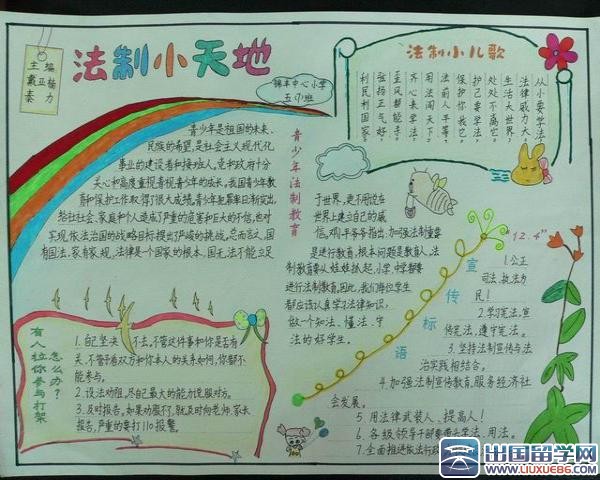 法制小天地
主编
戴亚杨
泰力
锦丰中心小学
五(1)班
法制小儿歌
从小要学法,
法律威力大。
生活大世界,
处处不离它。
护己要学法,
保护你我它。
法前人平等,
用法闯天下。
齐心来学法,
歪风都能刹。
弘扬正气好,
利民利国家。
青少年是祖国的未来、
民族的希望,是社会主义现代化
事业的建设者和接班人。党和政府十分
关心和高度重视青少年的成长。我国青少年教
育和保护工作取得了很大成绩。青少年犯罪日利突出,
给社社会、家庭和个人造成了严重的危害和巨大的不信,也对
实现依法治国的战略目标提出了严峻的挑战。总而言之,国
有国法,家有家规。法律是一个国家的根本。国无法不能立足
青少年法制教育
于世界,更不用说在
世界上建立自己的威
信。邓小平爷爷指出:加强法制重要
是进行教育,根本问题是教育人。法
制教育要从娃娃抓起,小学,中学都要
进行法制教育。因此,我们每位学生
都应该认真学习法律知识,
做一个知法、懂法、守
法的好学生。
有人拉你参与打架
怎么办?
1.自己坚决不去,不管这件事和你是否有
关,不管看双方和你本人的关系如何,你都不
能参与。
2.设法劝阻,尽自己最大的能力说服对方。
3.及时报告。如果劝服不了,就及时向老师、家长
报告,严重的要打110报警。
宣传标语
"12.4"
1.公正
司法,执法为
民!
2.学习宪法,宣
传宪法,遵守宪法。
3.坚持法制宣传与法
治实践相结合。
4.加强法制宣传教育,服务经济社
会发展。
5.用法律武装人、提高人!
6.各级领导干部要带头学法、用法。
7.全面推进依法行政
出国留学网
WWW.LIUXUE86.COM